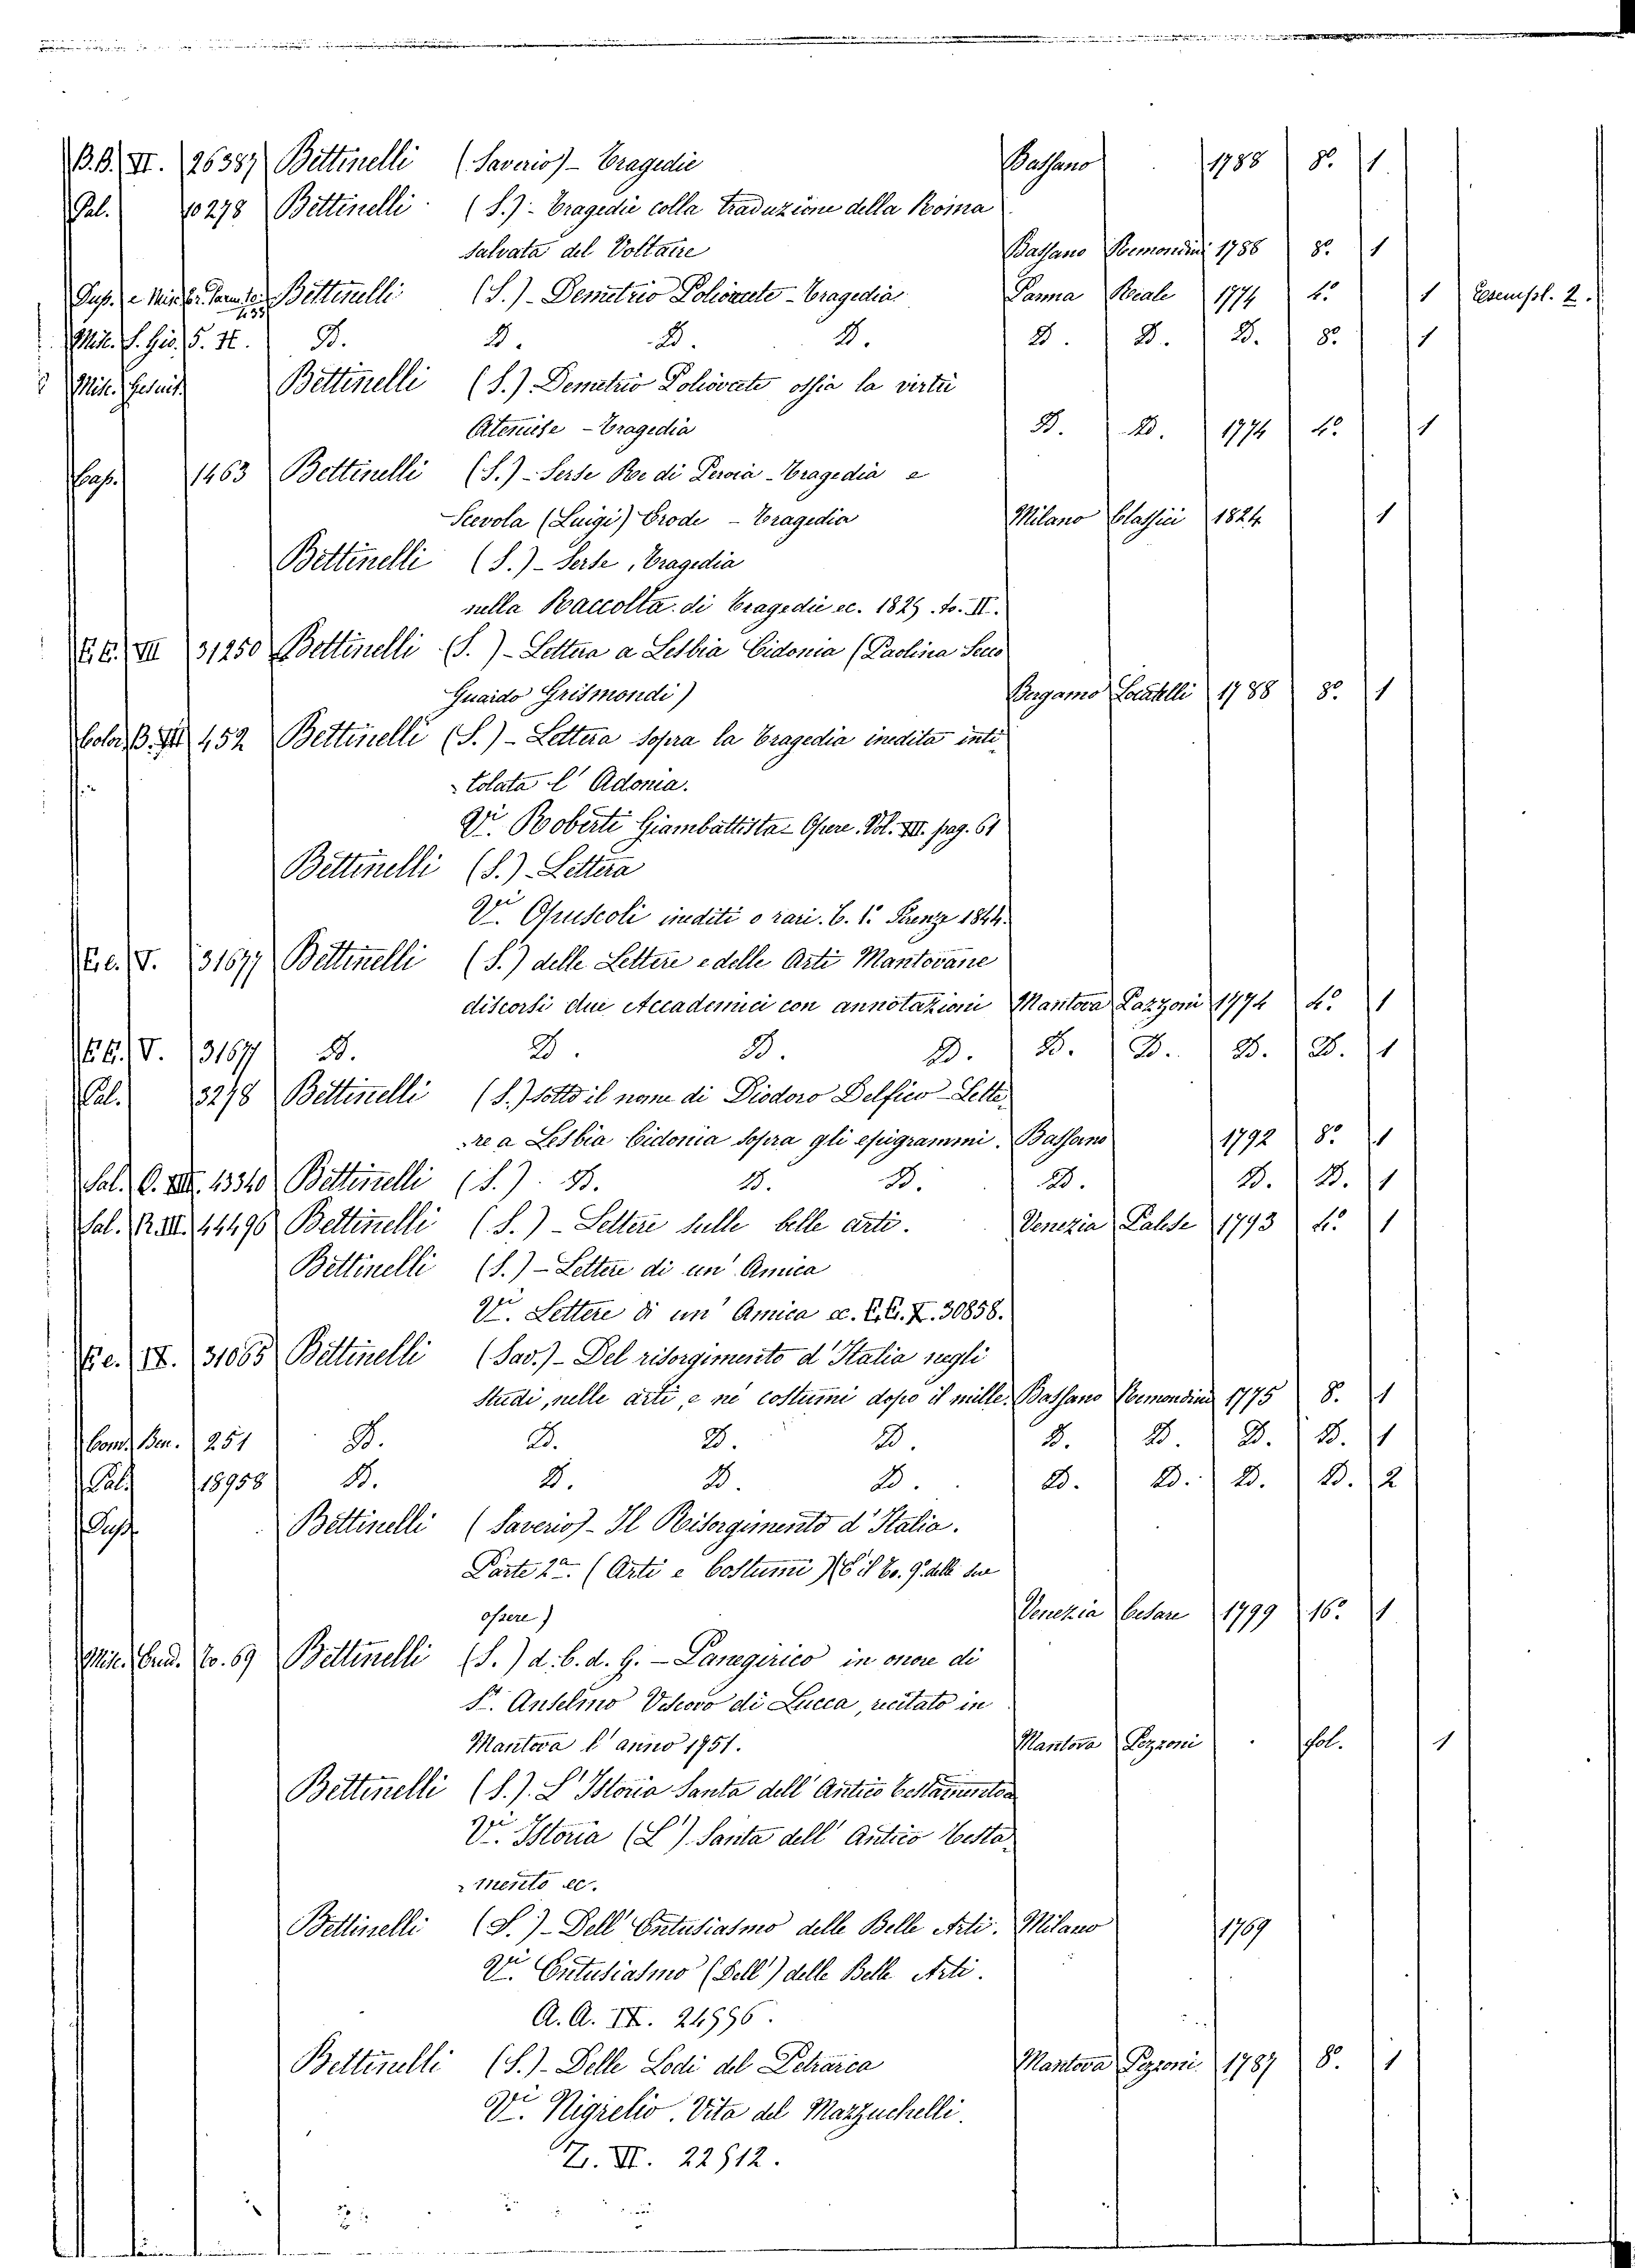 B.B. VI. 26387 Bettinelli (Saverio) - Tragedie Bassano 1788 8.º 1
Pal. 10278 Bettinelli (S.) - Tragedie colla traduzione della Roma
salvata del Voltaire Bassano Remondini 1788 8.º 1
Bettinelli (S.) - Demetrio Poliorcete - Tragedia Parma Reale 1774 4.º 1 Esempl. 2.
D. D. D. D. D. D. D. 8.º 1
Bettinelli (S.) Demetrio Poliorcete ossia la virtù
Ateniese - Tragedia D. D. 1774 4.º 1
1463 Bettinelli (S.) - Serse Re di Persia - Tragedia e
Scevola (Luigi) Erode - Tragedia Milano Classici 1824 1
Bettinelli (S.) - Serse, Tragedia
nella Raccolta di Tragedie ec. 1825. to. II.
E.E. VII 31250 Bettinelli (S.) - Lettera a Lesbia Cidonia (Paolina Secco
Guardo Grismondi) Bergamo Locatelli 1788 8.º 1
B. III 452 Bettinelli (S.) - Lettera sopra la Tragedia inedita inti-
tolata l' Adonia.
Vi. Roberti Giambattista - Opere. Vol. VII. pag. 61
Bettinelli (S.) - Lettera
Vi. Opuscoli inediti o rari. T. 1.º Firenze 1844.
E.e. V. 31677 Bettinelli (S.) delle Lettere e delle Arti Mantovane
discorsi due Accademici con annotazioni Mantova Pazzoni 1774 4.º 1
E.E. V. 31677 D. D. D. D. D. D. D. D. 1
Pal. 3278 Bettinelli (S.) sotto il nome di Diodoro Delfico - Lette-
re a Lesbia Cidonia sopra gli epigrammi. Bassano 1792 8.º 1
Sal. O. VIII. 13340 Bettinelli (S.) D. D. D. D. D. D. 1
Sal. R. III. 44496 Bettinelli (S.) - Lettere sulle belle arti. Venezia Palese 1793 4.º 1
Bettinelli (S.) - Lettere di un' Amica
Vi. Lettere di un' Amica ec. E.E. X. 30858.
E.e. IX. 31065 Bettinelli (Sav.) - Del risorgimento d' Italia negli
studi, nelle arti, e ne' costumi dopo il mille. Bassano Remondini 1775 8. 1
Ben. 251 D. D. D. D. D. D. D. D. 1
Pal. 18958 D. D. D. D. D. D. D. D. 2
Bettinelli (Saverio) - Il Risorgimento d' Italia.
Parte 2.ª (Arti e Costumi) (È il To. 9.º delle sue
opere) Venezia Cesare 1799 16.º 1
Misc. Erud. To. 69 Bettinelli (S.) d. C. d. G. - Panegirico in onore di
S. Anselmo Vescovo di Lucca, recitato in
Mantova l' anno 1751. Mantova Pazzoni fol. 1
Bettinelli (S.). L' Istoria Santa dell' Antico Testamento
Vi. Istoria (L') Santa dell' Antico Testa-
mento ec.
Bettinelli (S.) - Dell' Entusiasmo delle Belle Arti. Milano 1769
Vi. Entusiasmo (Dell') delle Belle Arti.
A. A. IX. 24996.
Bettinelli (S.) - Delle Lodi del Petrarca Mantova Pazzoni 1787 8.º 1
Vi. Nigrelio. Vita del Mazzuchelli.
Z. VI. 22912.